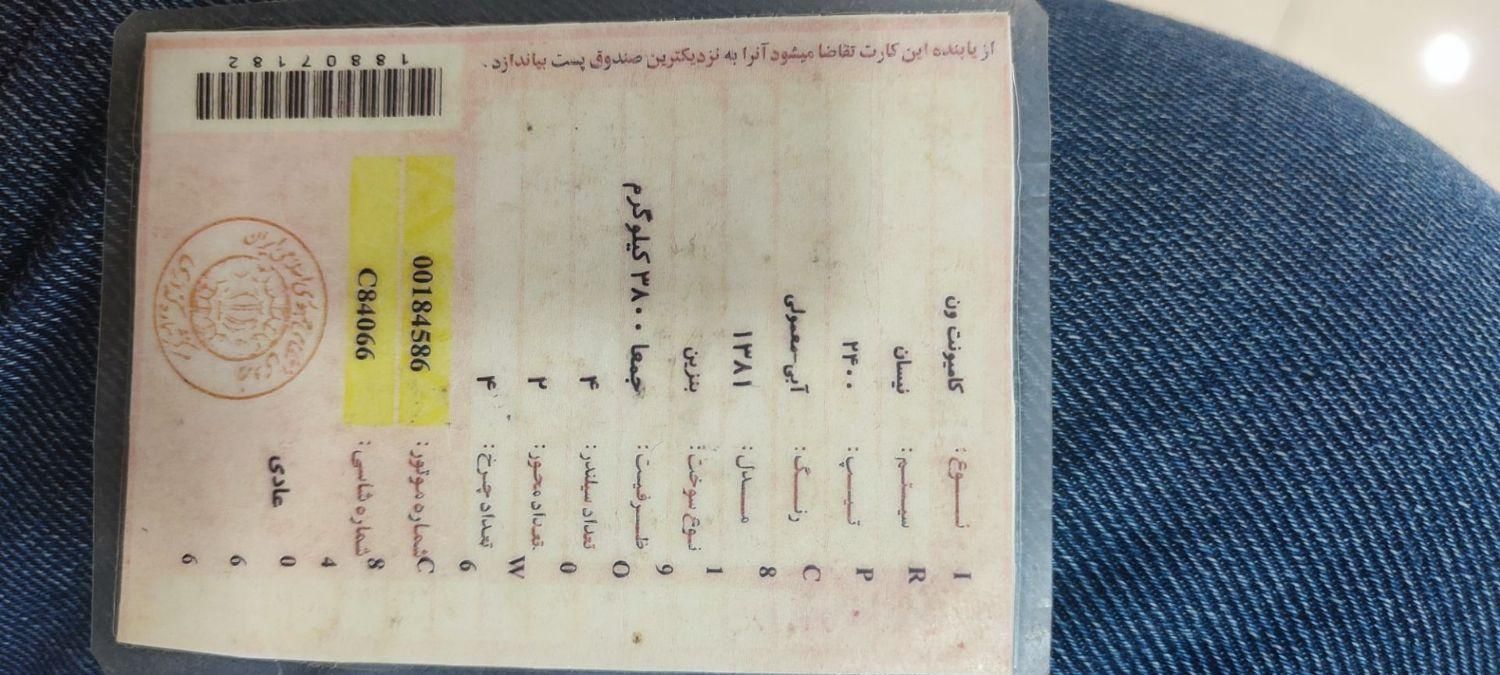 از یابنده این کارت تقاضا میشود آنرا به نزدیکترین صندوق پست بیاندازد .
18807182
نوع : کامیونت ون
سیستم : نیسان
تیپ : ۲۴۰۰
رنگ : آبی-معمولی
مدل : ۱۳۸۱
نوع سوخت : بنزین
ظرفیت : جمعا ۳۸۰۰ کیلوگرم
تعداد سیلندر : ۴
تعداد محور : ۲
تعداد چرخ : ۴
شماره موتور : 00184586
شماره شاسی : C84066
عادی
IRPC819O0W6C84066